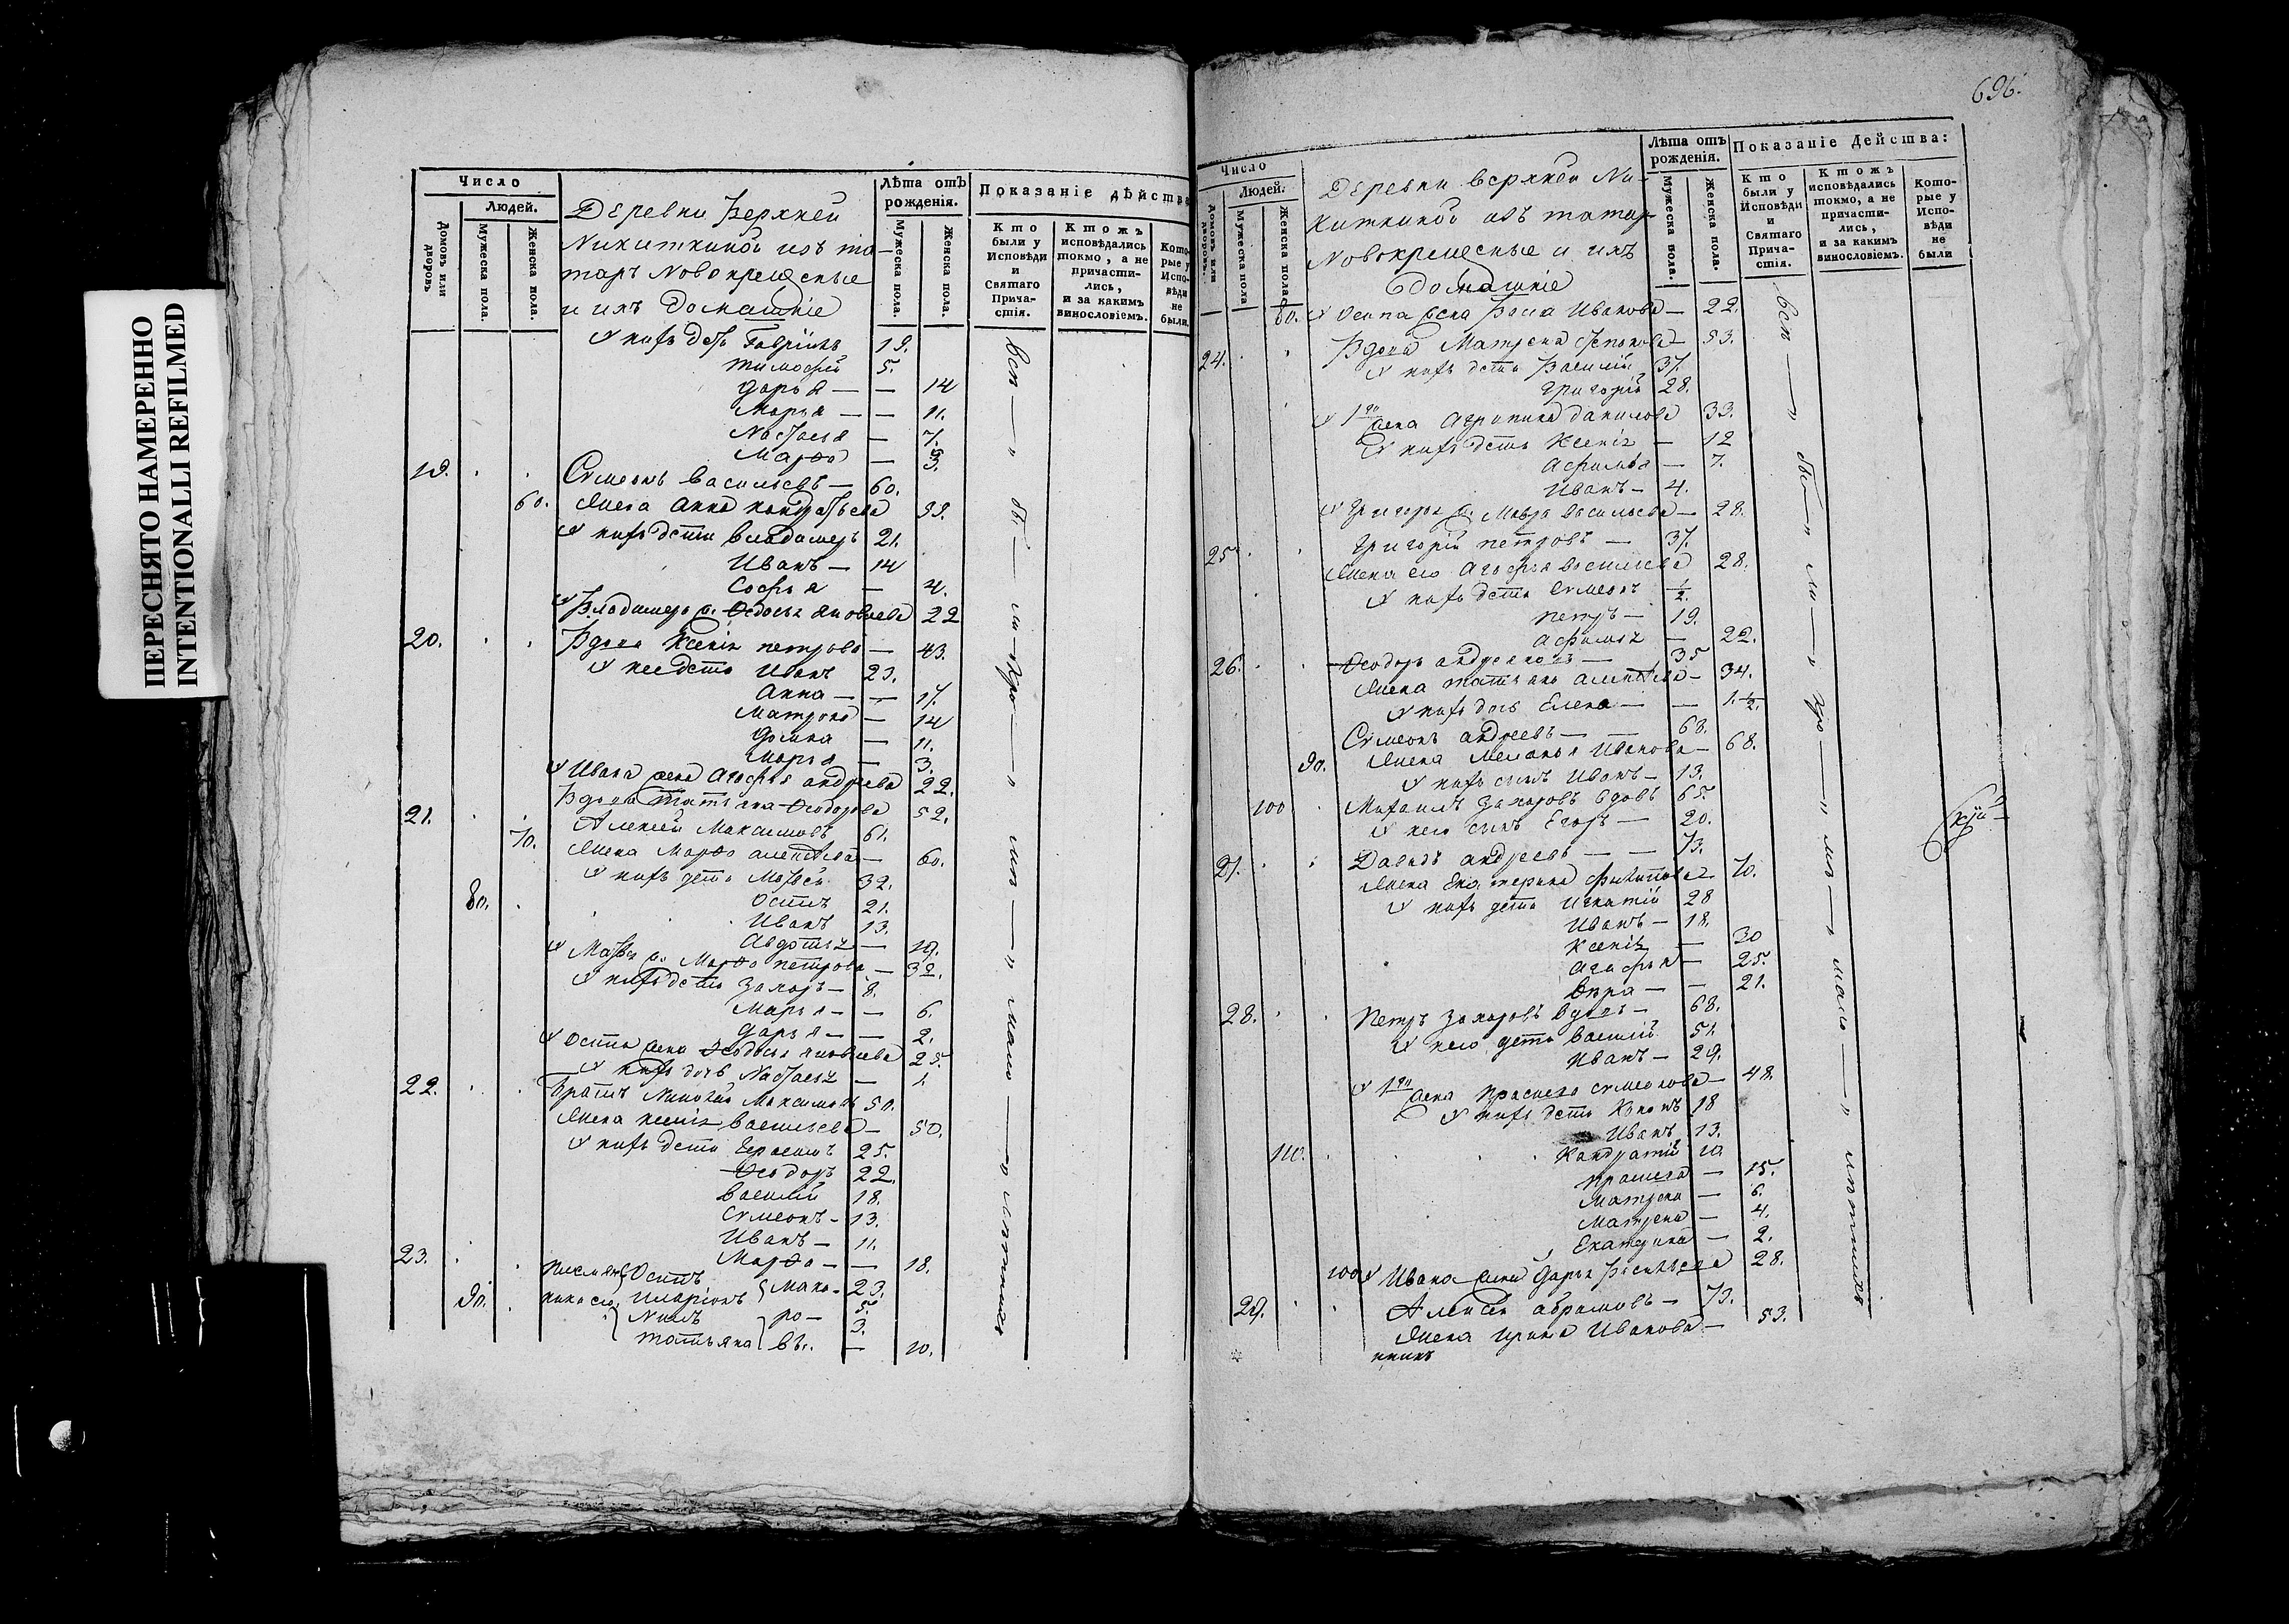 ПЕРЕСНЯТО НАМЕРЕННО
INTENTIONALLI REFILMED
Число
Людей.
Домовъ или дворовъ
Мужеска пола.
Женска пола.
Деревни Верхней
Никиткиной изъ та-
таръ Новокрещеные
и ихъ домашніе
Лѣта отъ рожденія.
Мужеска пола.
Женска пола.
Показаніе дѣйства
Кто были у Исповѣди и Святаго Прича-стія.
Ктожъ исповѣдались токмо, а не причасти-лись, и за какимъ винословіемъ.
Кото-рые у Испо-вѣди не были.
У нихъ дѣти Гавріилъ 19.
Тимофей 5.
Дарья — — 14
Марья — — 11.
Настасья — 7.
Марфа — 3.
19. Сѵмеонъ Васильевъ — 60.
60. Жена Анна Кондратьева
У нихъ дѣти Владимеръ 21.
Иванъ — 14
Софья — 4.
Владимера ж. Ѳедосья Яковлева 22
20. Вдова Ксенія Петрова — 43.
У нее дѣти Иванъ 23.
Анна — — 17.
Матрона — 14
Домна — 11.
Марья — 3.
У Ивана жена Агафья Андреева 22.
21. Вдова Татьяна Ѳеодорова 52.
Алексей Максимовъ 61.
70. Жена Марфа Алексѣева — 60.
У нихъ дети Матвей 32.
80. Осипъ 21.
Иванъ 13.
Авдотья — 19.
У Матвея ж. Марфа Петрова — 32.
У нихъ дѣти Захаръ — 8.
Марья — — 6.
Дарья — — 2.
У Осипа жена Ѳеодосья Яковлева 25.
У нихъ дочь Настасья — 1
22. Братъ Николай Максимовъ 50.
Жена Ксенія Васильева — 50.
У нихъ дети Герасимъ 25.
Ѳеодоръ 22.
Василій 18.
Сѵмеонъ — 13.
Иванъ — 11.
Марфа — — 18.
23. Осипъ
90. Иларіонъ Мака- 23.
Нилъ ро- 5.
3.
Татьяна въ. — 10.
Всѣ — обы — ли — мало — лѣтныхъ
696.
Число
Людей.
Домовъ или дворовъ.
Мужеска пола
Женска пола
Деревни верхней Ни-
киткиной изъ татаръ
Новокрещеные и ихъ
домашніе
Лѣта отъ рожденія.
Мужеска пола.
Женска пола.
Показаніе Дейсшва:
Кто были у Исповѣди и Святаго Прича-стія.
Ктожъ исповѣдались токмо, а не причасти-лись, и за какимъ винословіемъ.
Кото-рые у Испо-вѣди не были
80. У Осипа жена Иванова — 22.
24. Вдова Матрена — 53.
У нихъ дети Василій 37.
Григорій 28.
У 1го жена Агрипина Данилова 33.
У нихъ дети Ксенія — 12
Афимья — 7.
Иванъ — 4.
У Григорья ж. Мавра Васильева — 28.
25. Григорій Петровъ — 37.
Жена его Агафья Васильева 28.
У нихъ дети Сѵмеонъ 1/2.
Петръ — 19.
Афимья — 22.
26. Ѳеодоръ — 35
Жена Татьяна Алексѣева — 34.
У нихъ дочь Елена — — 1 1/2.
Сѵмеонъ Андреевъ — — 68.
90. Жена Меланья Иванова — 68.
У нихъ сынъ Иванъ — 13.
100 Михаилъ Захаровъ вдовъ 65.
У него сынъ Егоръ — 20.
27. Давидъ Андреевъ — — 73.
Жена Екатерина Филиппова 70.
У нихъ дети Игнатій 28
Иванъ — 18.
Ксенія — 30
Агафья — 25.
Вѣра — — 21.
28. Петръ Захаровъ вдовъ — 68.
У него дети Василій 51.
Иванъ — 29.
У 1го жена Сѵмеонова — 48.
У нихъ дети 18
Иванъ 13.
110. Кондратій 10
— 15.
Матрена — 6.
Матрена — 4.
Екатерина — 2.
100 У Ивана жена Дарья Васильева 28.
29. Алексей Абрамовъ — 73.
Жена Ирина Иванова — 53.
Всѣ — обы — ли — мало — лѣтныхъ